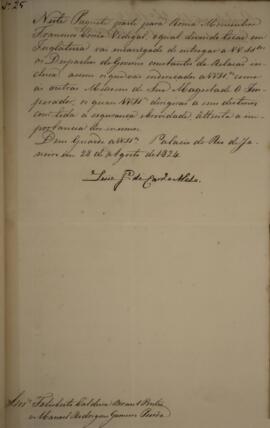 Nº 25
Neste Paquete parte para Roma Monsenhor
Francisco Corrêa Vidigal, o qual devendo tocar em
Inglaterra vai encarregado de entregar a VV. SSªs
os Despachos do Governo constantes da Relação in-
clusa, assim o que vai endereçado a VV. SSªs como
as outras de Sua Magestade O Im-
perador, o que VV. SSªs dirigirão a seus destinos
com toda a segurança e brevidade, attenta a im-
portancia dos mesmos.
Deus Guarde a VV. SSªs Palacio do Rio de Ja-
neiro em 28 de Agosto de 1824.
Luiz Jº de Carvº e Mello.
Snrs. Felisberto Caldeira Brant Pontes
e Manoel Rodrigues Gameiro Pessôa